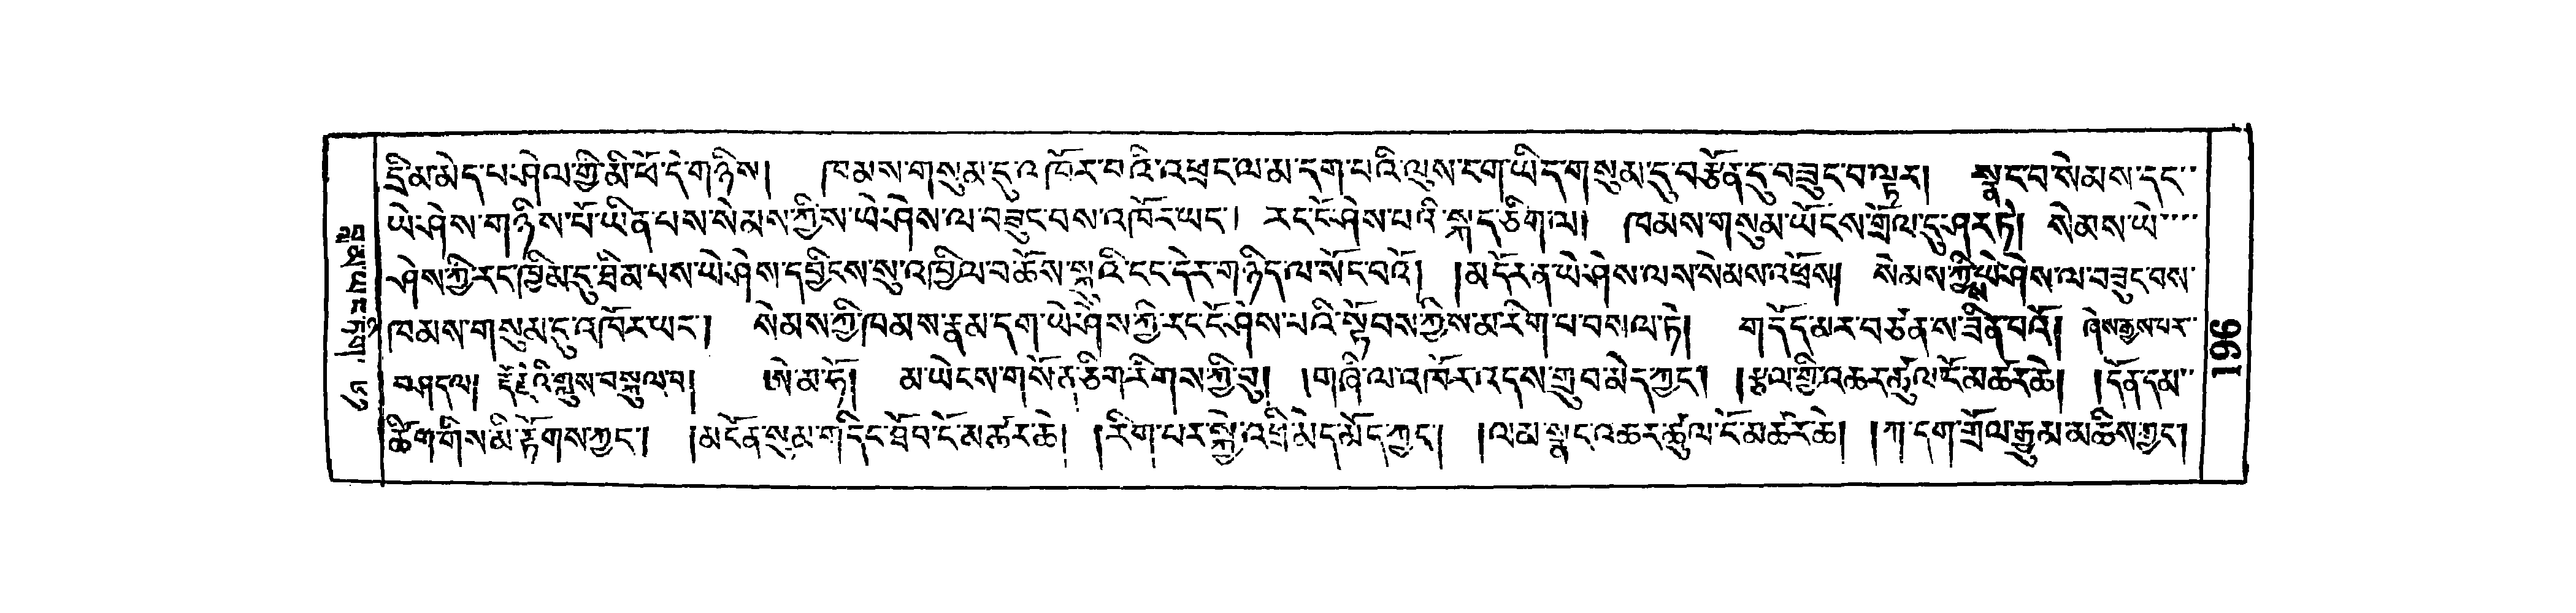 དྲི་མ་མེད་པ་ཤེལ་གྱི་མི་ཕོ་དེ་གཉིས། །ཁམས་གསུམ་དུ་འཁོར་བའི་འཕྲང་ལ་མ་དག་པའི་ལུས་ངག་ཡིད་གསུམ་དུ་བརྩོན་དུ་བཟུང་བ་ལྟར། སྣང་བ་སེམས་དང་
ཡེ་ཤེས་གཉིས་པོ་ཡིན་པས་སེམས་ཀྱིས་ཡེ་ཤེས་ལ་བཟུང་བས་འཁོར་ཡང་། རང་ངོ་ཤེས་པའི་སྐད་ཅིག་ལ། ཁམས་གསུམ་ཡོངས་གྲོལ་དུ་ཤར་ཏེ། སེམས་ཡེ་
ཤེས་ཀྱི་རང་ཁྱིམ་དུ་ཐིམ་པས་ཡེ་ཤེས་དབྱིངས་སུ་འཁྱིལ་བ་ཆོས་སྐུའི་ངང་དེར་གཉིད་ལ་སོང་བའོ། །མདོར་ན་ཡེ་ཤེས་ལས་སེམས་འཕྲོས། སེམས་ཀྱི་ཡེ་ཤེས་ལ་བཟུང་བས་
ཁམས་གསུམ་དུ་འཁོར་ཡང་། སེམས་ཀྱི་ཁམས་རྣམ་དག་ཡེ་ཤེས་ཀྱི་རང་ངོ་ཤེས་པའི་སྟོབས་ཀྱིས་མ་རིག་པ་བསལ་ཏེ། གདོད་མར་བཙན་ས་ཟིན་བའོ། ཞེས་རྒྱས་པར་
བཤདལ། རྡོ་རྗེའི་གླུས་བསྐུལ་བ། ཨེ་མ་ཧོ། མ་ཡེངས་གསོན་ཅིག་རིགས་ཀྱི་བུ། །གཞི་ལ་འཁོར་འདས་གྲུབ་མེད་ཀྱང་། །རྩལ་གྱི་འཆར་ཚུལ་ངོ་མཚར་ཆེ། །དོན་དམ་
ཚིག་གིས་མི་རྟོགས་ཀྱང་། །མངོན་སུམ་གདིང་ཐོབ་ངོ་མཚར་ཆེ། །རིག་པར་སྐྱེ་འཕྲི་མེད་མོད་ཀྱང་། །ལམ་སྣང་འཆར་ཚུལ་ངོ་མཚར་ཆེ། །ཀ་དག་གྲོལ་རྒྱུ་མ་མཆིས་ཀྱང་།